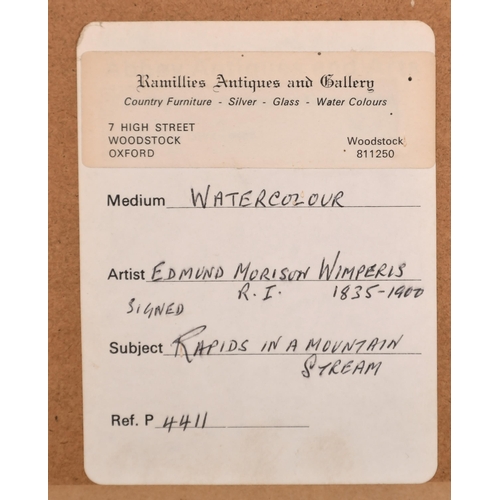 Ramillies Antiques and Gallery
Country Furniture - Silver - Glass - Water Colours
7 HIGH STREET
WOODSTOCK
OXFORD
Woodstock
811250
Medium WATERCOLOUR
Artist EDMUND MORISON WIMPERIS
SIGNED R.I. 1835-1900
Subject RAPIDS IN A MOUNTAIN
STREAM
Ref. P 4411